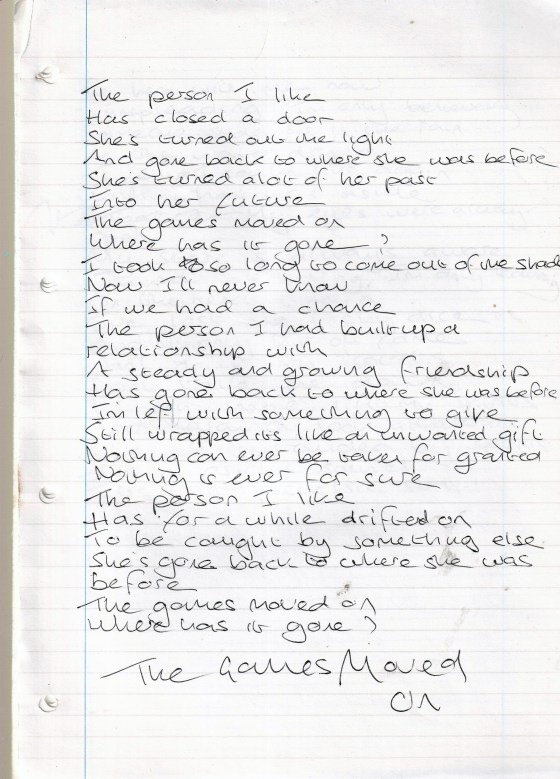 The person I like
Has closed a door
She's turned out the light
And gone back to where she was before
She's turned alot of her past
Into her future
The games moved on
Where has it gone?
I took so long to come out of the shad
Now I'll never know
If we had a chance
The person I had built up a
relationship with
A steady and growing friendship
Has gone back to where she was before
I'm left with something to give
Still wrapped its like an unwanted gift
Nothing can ever be taken for granted
Nothing is ever for sure
The person I like
Has for a while drifted on
To be caught by something else
She's gone back to where she was
before
The games moved on
Where has it gone?
The Games Moved
On